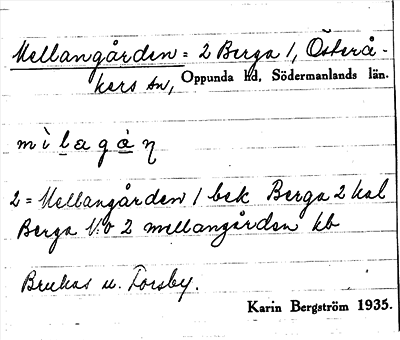 Mellangården = 2 Berga 1, Österå-
kers sn, Oppunda hd, Södermanlands län.
mìlagàn
2 = Mellangården 1 bek Berga 2 hal
Berga N:o 2 mellangården kb
Brukas u. Forsby.
Karin Bergström 1935.